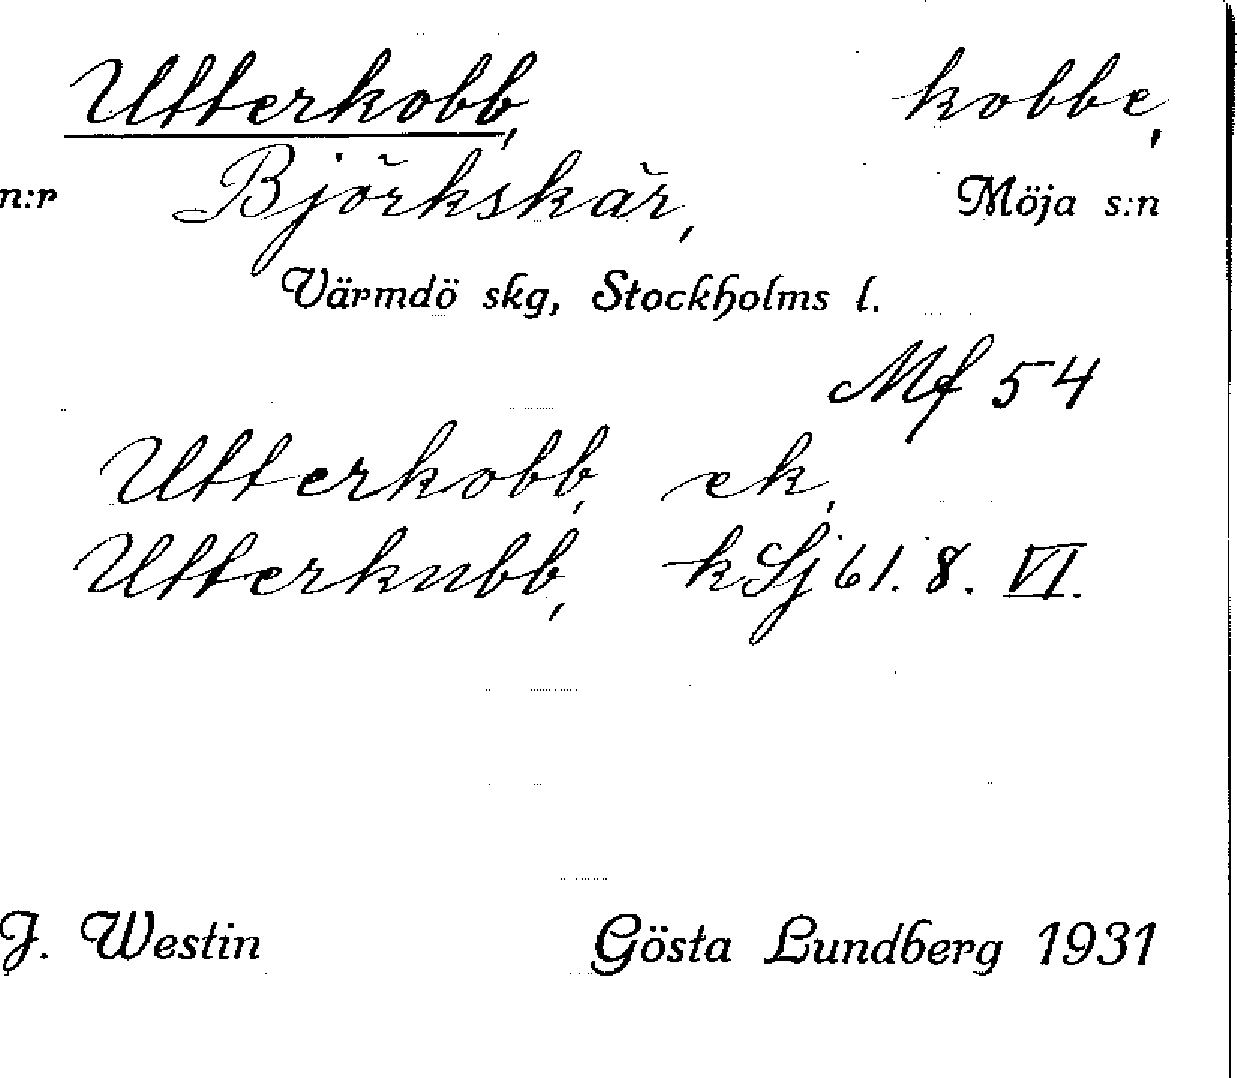 Utterkobb, kobbe,
n:r Björkskär, Möja s:n
Värmdö skg, Stockholms l.
Mf 54
Utterkobb, ek,
Utterkubb, kSj 61. 8. VI.
J. Westin Gösta Lundberg 1931